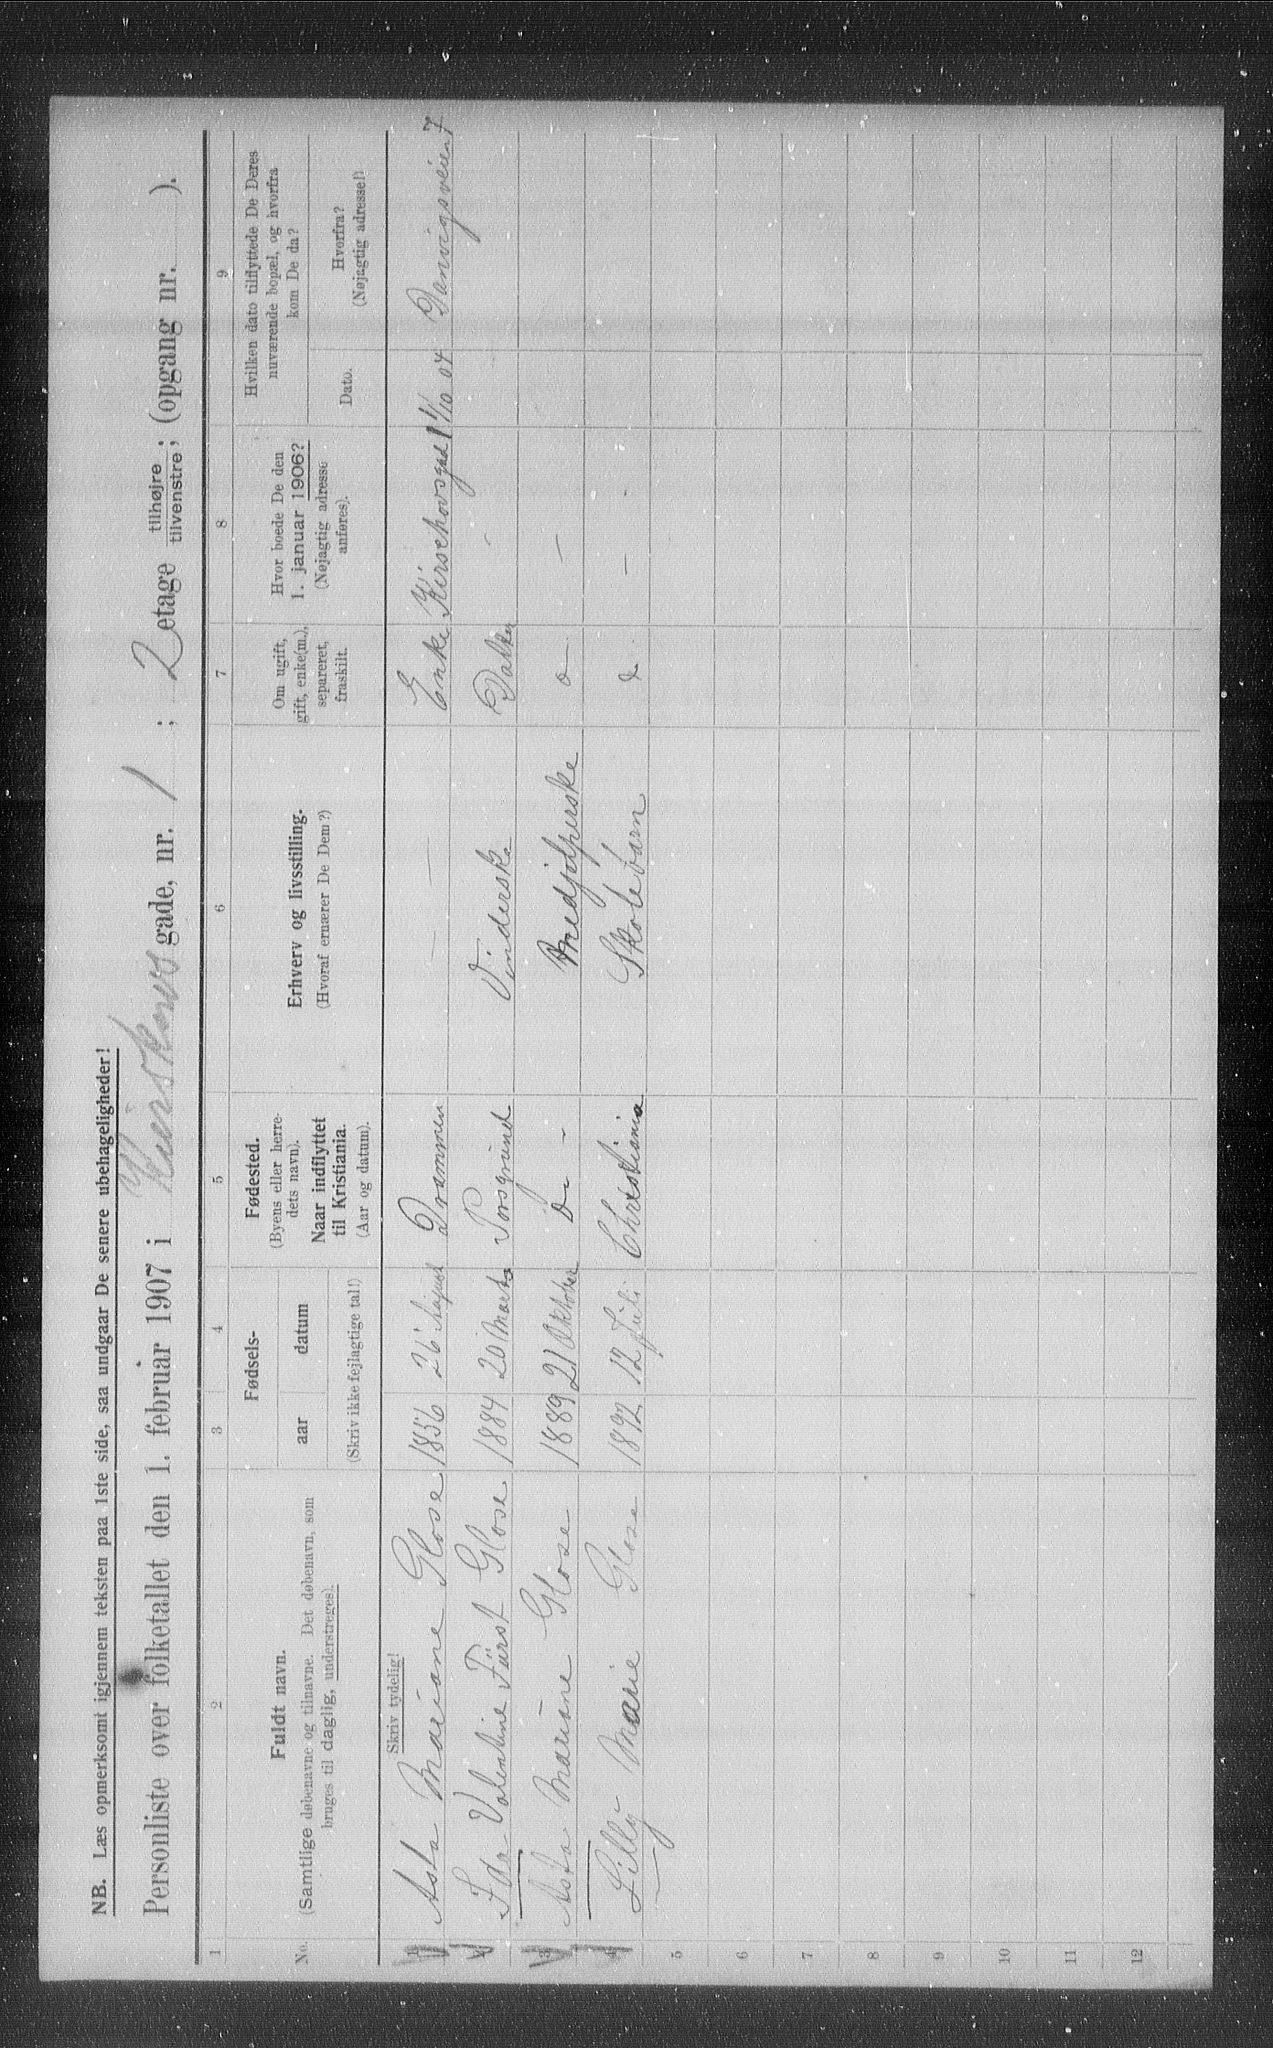 NB. Læs opmerksomt igjennem teksten paa 1ste side, saa undgaar De senere ubehageligheder!
Personliste over folketallet den 1. februar 1907 i Kierskows gade, nr. 1 ; 2 etage tilhøjre; tilvenstre; (opgang nr. ).
1 2 3 4 5 6 7 8 9
No.
Fuldt navn.
(Samtlige døbenavne og tilnavne. Det døbenavn, som
bruges til daglig, understreges).
Fødsels-
aar datum
(Skriv ikke fejlagtige tal!)
Fødested.
(Byens eller herre-
dets navn).
Naar indflyttet
til Kristiania.
(Aar og datum).
Erhverv og livsstilling.
(Hvoraf ernærer De Dem?)
Om ugift,
gift, enke(m.),
separeret,
fraskilt.
Hvor boede De den
1. januar 1906?
(Nøjagtig adresse
anføres).
Hvilken dato tilflyttede De Deres
nuværende bopæl, og hvorfra
kom De da?
Dato.
Hvorfra?
(Nøjagtig adresse!)
Skriv tydelig!
1 Asta Mariane Glose 1856 26 August Drammen — — Enke Kirschovsgad 1 1/10 04 Danvigsveien 7
2 Ida Valentine Fürst Glose 1884 20 Marts Porsgrund Vinderske Datter -
3 Asta Marine Glose 1889 21 Oktober Do - Medjelperske do — -
4 Lilly Marie Glose 1892 12 Juli Christiania Skolebarn do — -
5
6
7
8
9
10
11
12